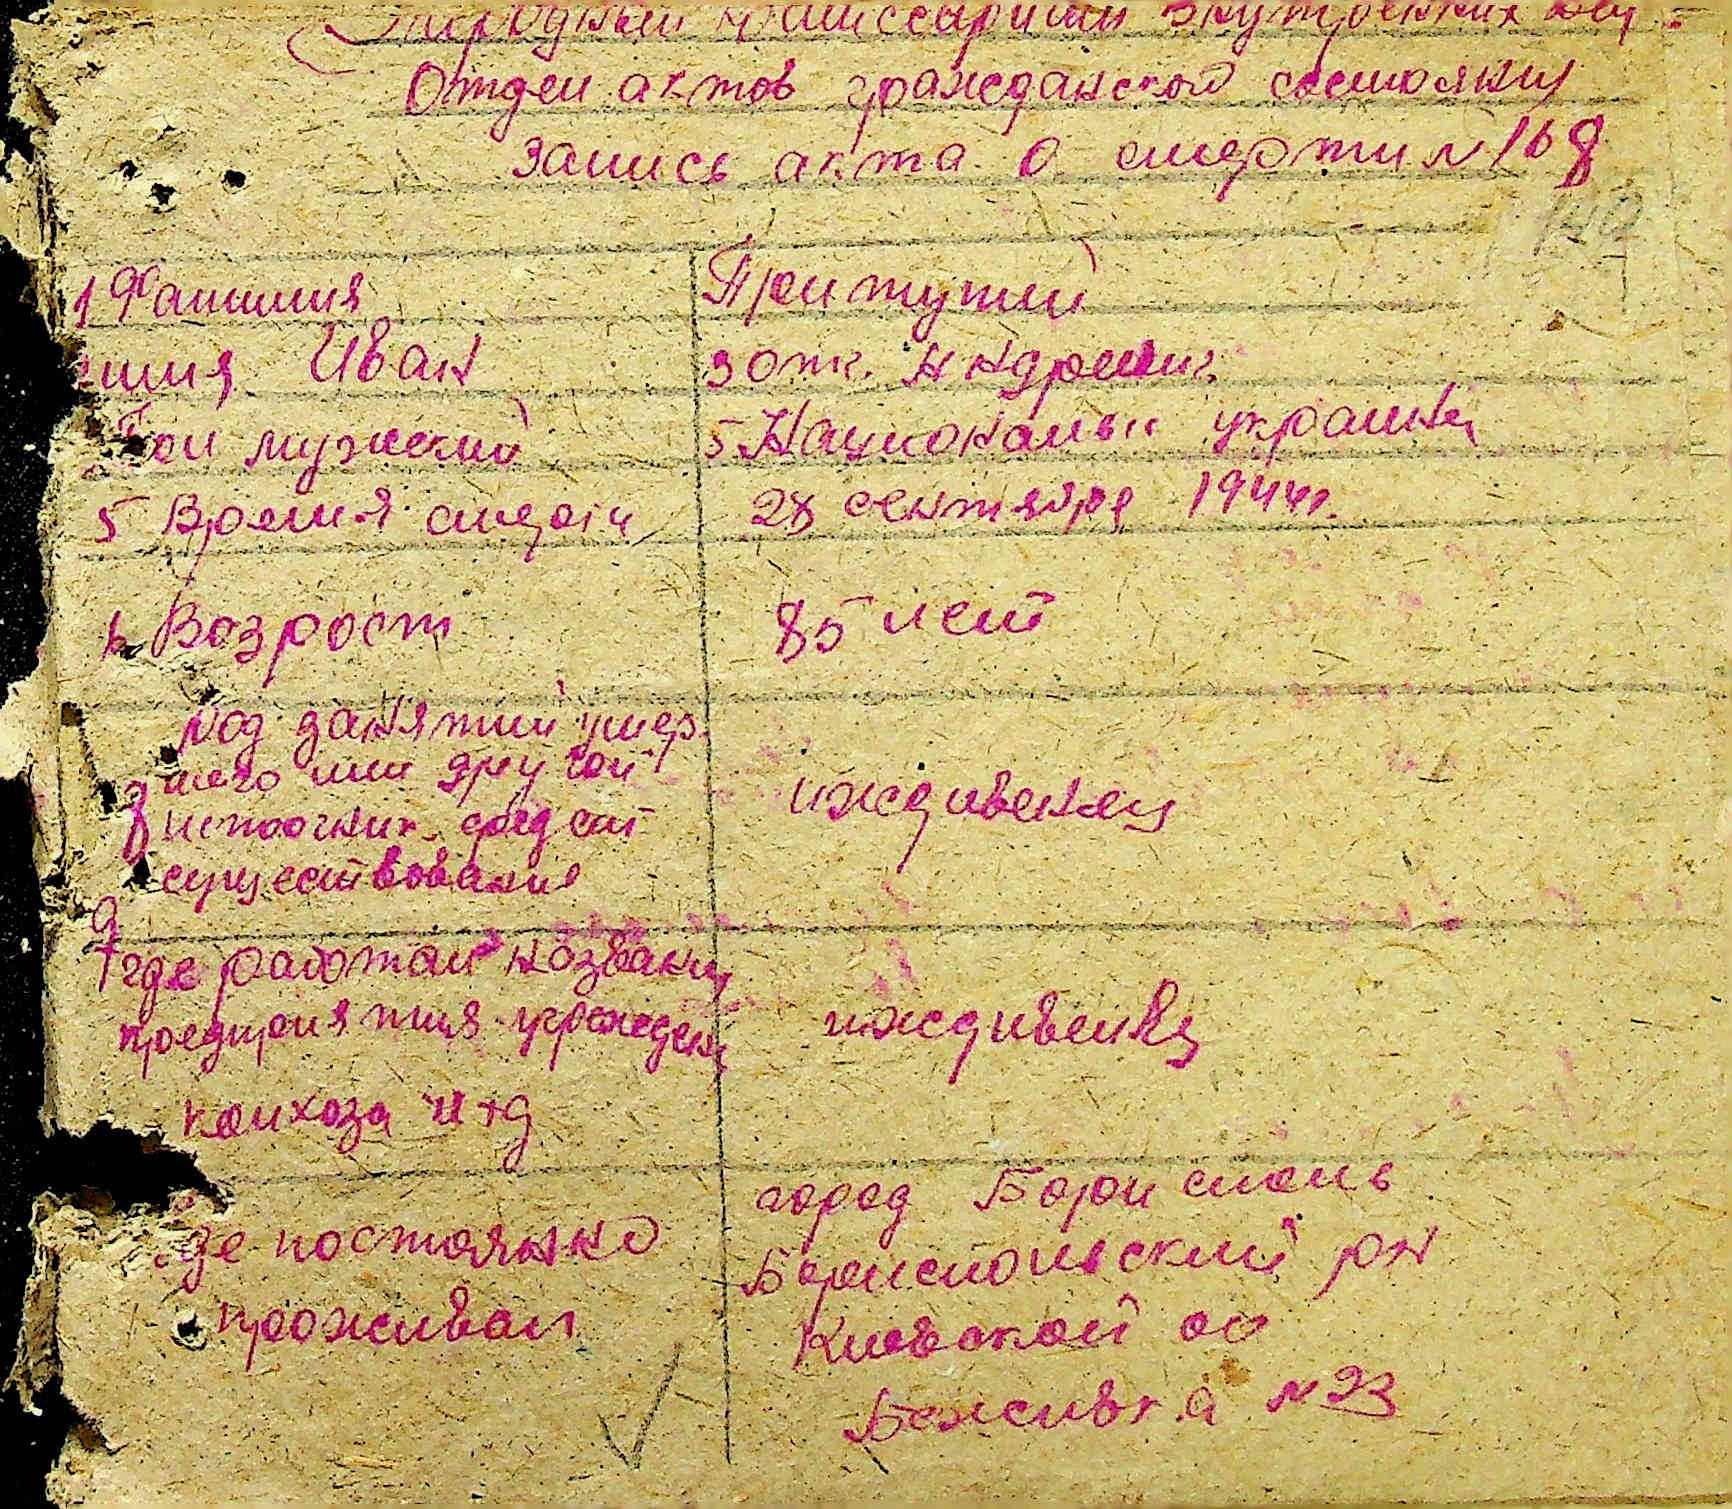 Народный комиссариат внутренних дел
Отдел актов гражданской состояния
Запись акта о смерти N 168
140
1 Фамилия Притутий
имя Иван 3 отч. Андреевич
Пол мужской 5 Национальн украинец
5 Время смерти 28 сентября 1944 г.
6 Возрост 85 лет
род занятий умер
шего или другой
8 источник средств иждивенец
существования
9 где работал название
предприятия учрежден иждивенец
колхоза и т д
город Борисполь
где постоянно Бориспольский р-н
проживал Киевской об
N 23